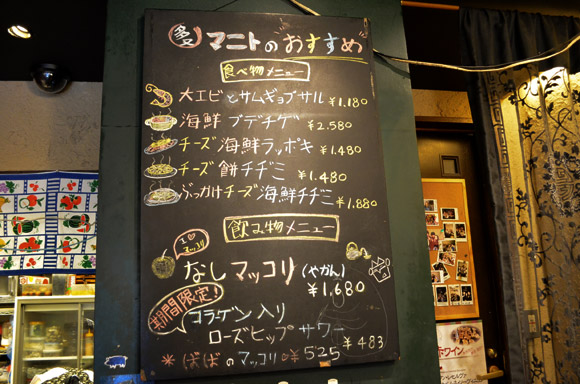 マニトのおすすめ
食べ物メニュー
大エビとサムギョプサル ¥1.180
海鮮 プデチゲ ¥2.580
チーズ 海鮮ラッポキ ¥1.480
チーズ 餅チヂミ ¥1.480
ぶっかけチーズ海鮮チヂミ ¥1.880
飲み物メニュー
I ♡ マッコリ
なしマッコリ (やかん) ¥1,680
期間限定!
コラーゲン入り
ローズヒップサワー ¥483
*ばばのマッコリ ¥525